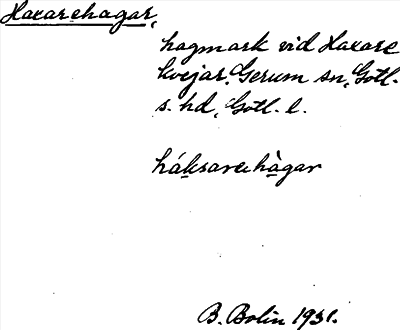 Haxarehagar,
hagmark vid Haxare
kvejar, Gerum sn, Gotl.
s. hd, Gotl. l.
háksarehàgar
B. Bolin 1931.